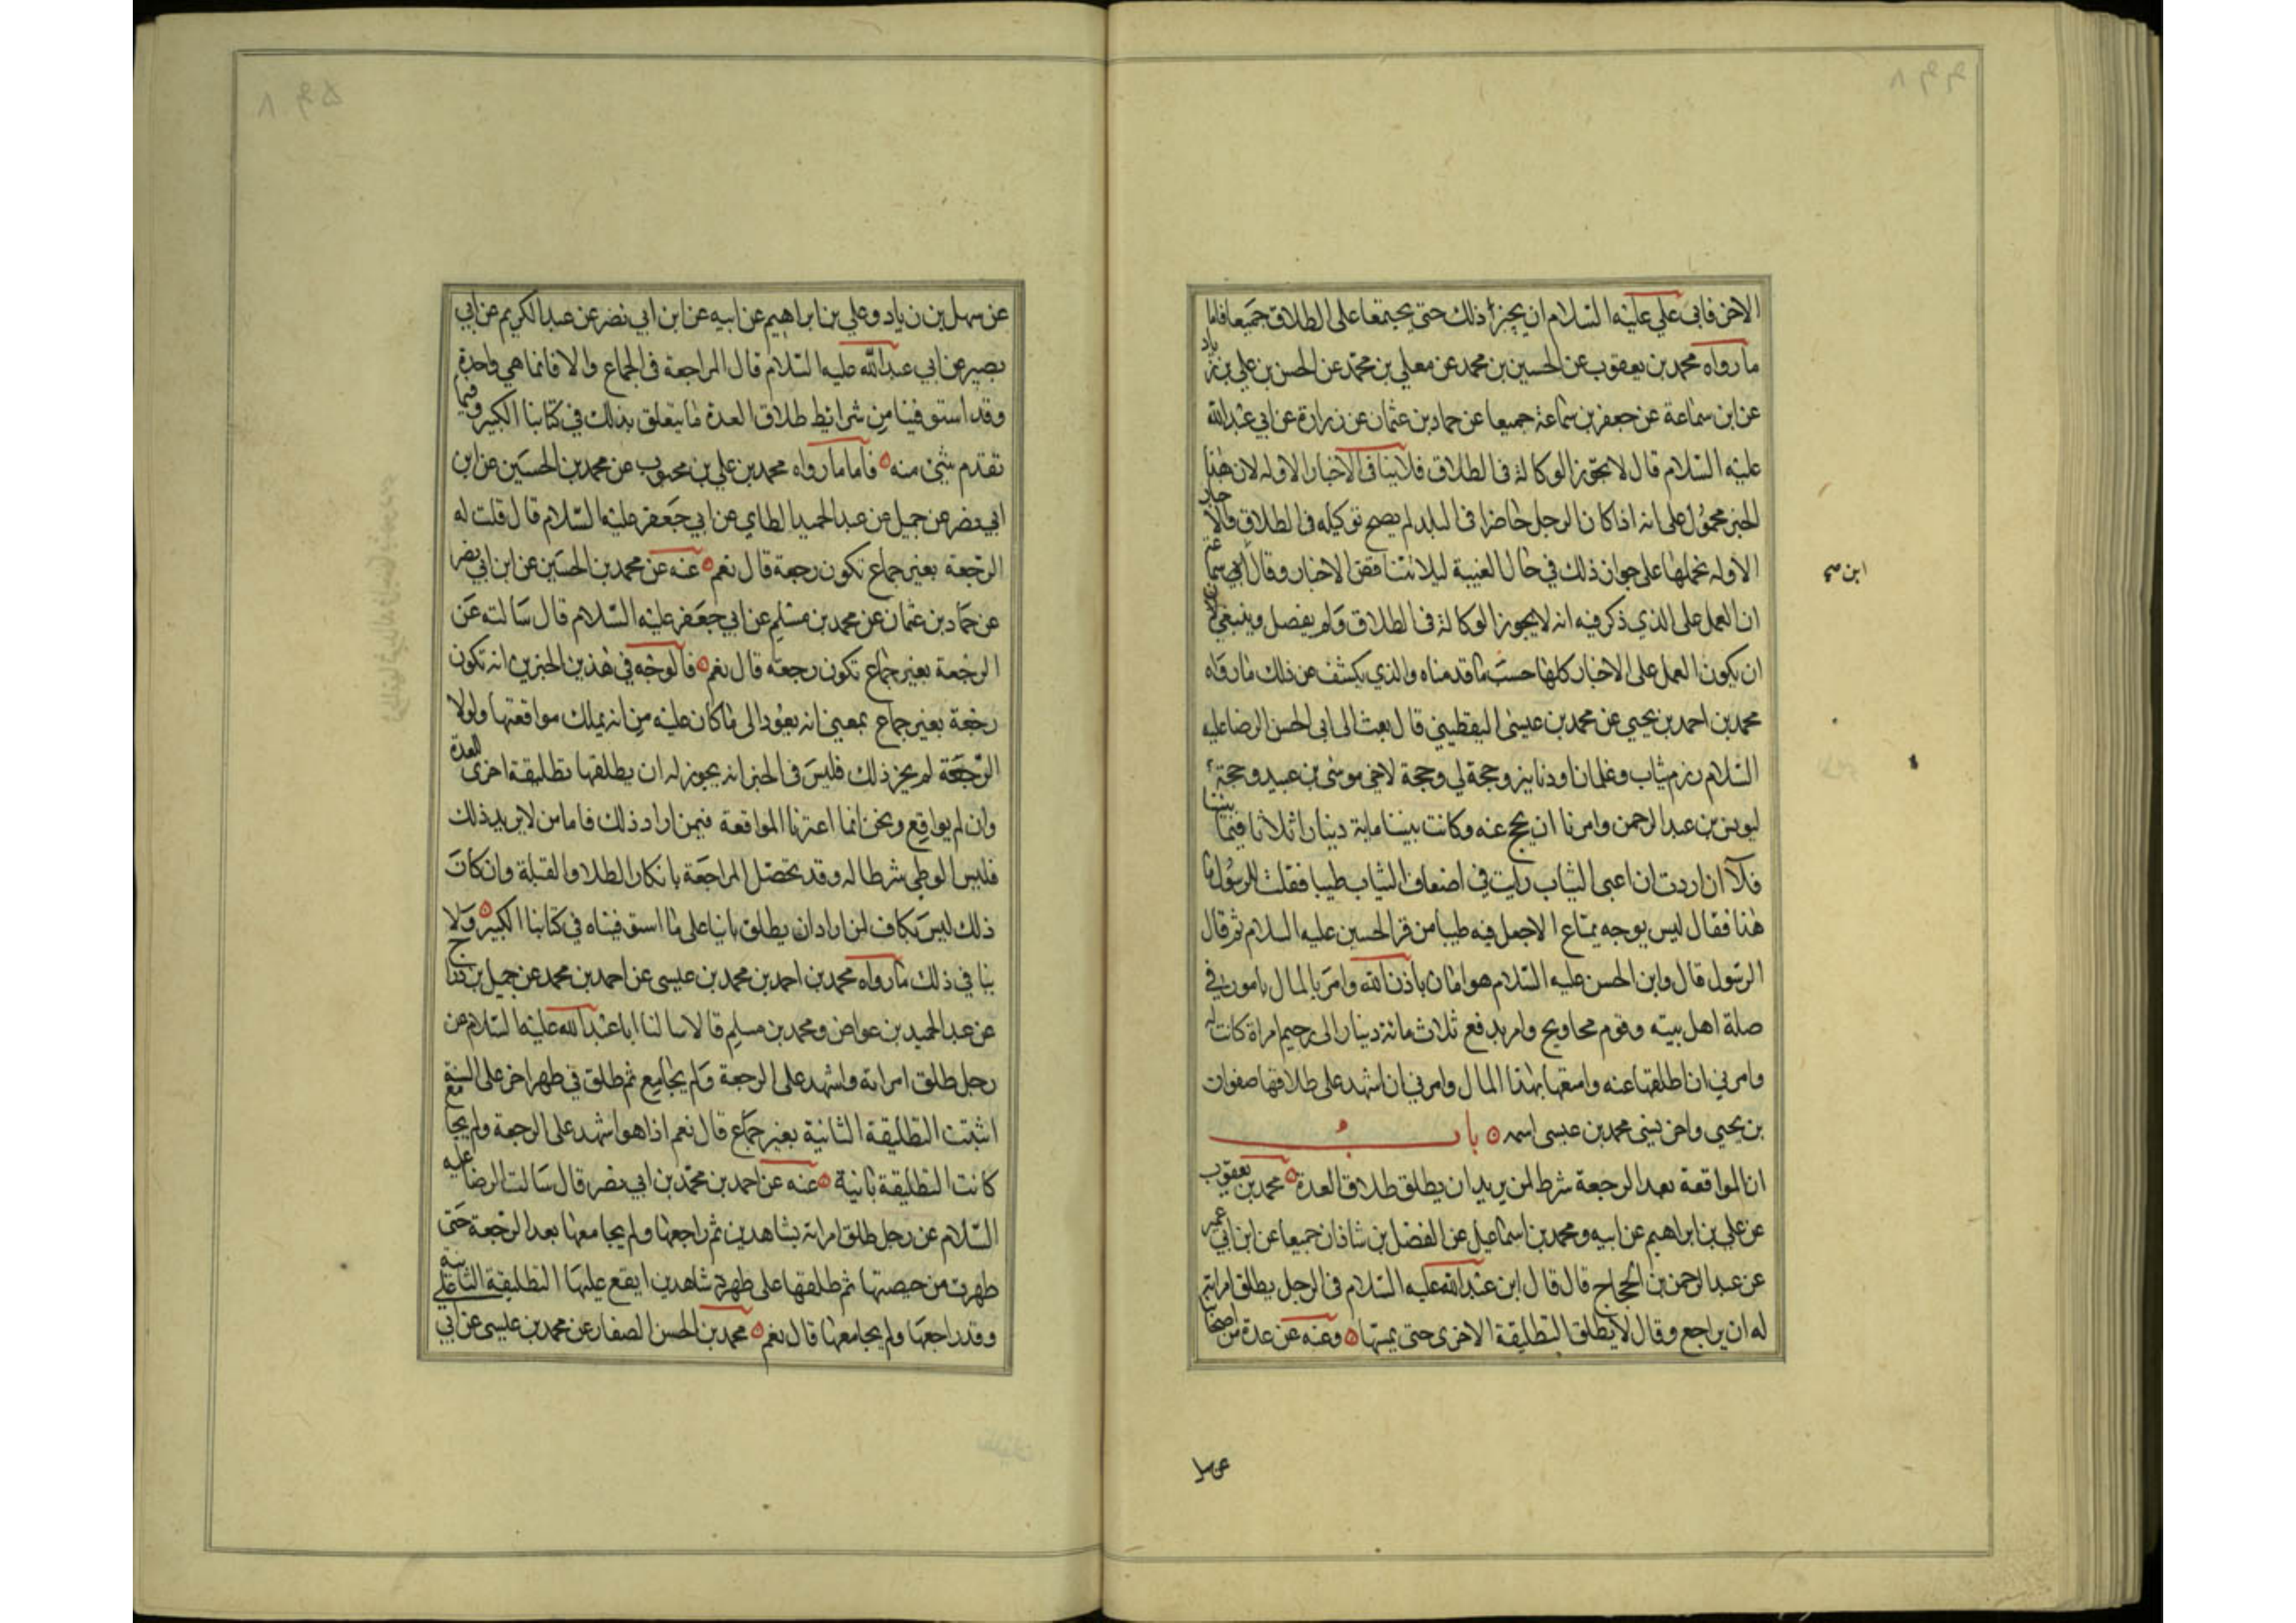 الاخر فابى علي عليه السلام ان يجيز ذلك حتى يجتمعا على الطلاق جميعا فاما
ما رواه محمد بن يعقوب عن الحسين بن محمد عن معلى بن محمد عن الحسن بن علي بن زياد
عن ابن سماعة عن جعفر بن سماعة جميعا عن حماد بن عثمان عن زرارة عن ابي عبد الله
عليه السلام قال لا يجوز الوكالة فى الطلاق فلا ينافى الاخبار الاوله لان هذا
الخبر محمول على انه اذا كان الرجل حاضرا فى البلد لم يصح توكيله فى الطلاق والاخبار
الاوله نحملها على جواز ذلك في حال الغيبة ليلا تتناقض الاخبار وقال ابن سماعة
ان العمل على الذي ذكر فيه انه لا يجوز الوكالة فى الطلاق ولم يفصل وينبغي
ان يكون العمل على الاخبار كلها حسب ما قدمناه والذي يكشف عن ذلك ما رواه
محمد بن احمد بن يحيي عن محمد بن عيسى اليقطيني قال بعث الى ابى الحسن الرضا عليه
السلام رزم ثياب وغلمانا ودنانير وحجة لي وحجة لاخي موسى بن عبيد وحجة
ليونس بن عبد الرحمن وامرنا ان نحج عنه وكانت بيننا ماية دينار اثلاثا فيما بيننا
فلآ ان اردت ان اعبى الثياب رايت في اضعاف الثياب طيبا فقلت للرسول ما
هذا فقال ليس يوجه بمتاع الا جعل فيه طيبا من قبر الحسين عليه السلام ثم قال
الرسول قال وابن الحسن عليه السلام هو امان باذن الله وامر بالمال بامور في
صلة اهل بيته وقوم محاويج وامر بدفع ثلاث مائة دينار الى رحيم امراة كانت له
وامرني ان اطلقها عنه وامتعها بهذا المال وامرني ان اشهد على طلاقها صفوان
بن يحيي واخر يسي محمد بن عيسى اسمه باب
ان المواقعة بعد الرجعة شرط لمن يريد ان يطلق طلاق العدة محمد بن يعقوب
عن علي بن ابراهيم عن ابيه ومحمد بن اسماعيل عن الفضل بن شاذان جميعا عن ابن ابي عمير
عن عبد الرحمن بن الحجاج قال قال ابن عبد الله عليه السلام فى الرجل يطلق امراته
له ان يراجع وقال لا يطلق التطليقة الاخرى حتى يمسها وعنه عن عدة من اصحابنا
عن سهل
عن سهل بن زياد وعلي بن ابراهيم عن ابيه عن ابن ابي نصر عن عبد الكريم عن ابي
بصير عن ابي عبد الله عليه السلام قال المراجعة فى الجماع والا فانما هي واحدة
وقد استوفينا من شرائط طلاق العدة ما يتعلق بذلك في كتابنا الكبير وفيما
تقدم شئ منه فاما ما رواه محمد بن علي بن محبوب عن محمد بن الحسين عن ابن
ابي نصر عن جميل عن عبد الحميد الطاي عن ابي جعفر عليه السلام قال قلت له
الرجعة بغير جماع تكون رجعة قال نعم عنه عن محمد بن الحسين عن ابن ابي نصر
عن حماد بن عثمان عن محمد بن مسلم عن ابي جعفر عليه السلام قال سالته عن
الرجعة بغير جماع تكون رجعة قال نعم فالوجه في هذين الخبرين انه تكون
رجعة بغير جماع بمعنى انه يعود الى ما كان عليه من انه يملك مواقعتها ولولا
الرجعة لم يجز ذلك فليس فى الخبر انه يجوز له ان يطلقها تطليقة اخرى للعدة
وان لم يواقع ونحن انما اعتبرنا المواقعة فيمن اراد ذلك فاما من لا يريد ذلك
فليس الوطي شرطا له وقد تحصل المراجعة بانكار الطلاق والقبلة وان كان
ذلك ليس بكاف لمن اراد ان يطلق ثانيا على ما استوفيناه في كتابنا الكبير ولا
ينافي ذلك ما رواه محمد بن احمد بن محمد بن عيسى عن احمد بن محمد عن جميل بن دراج
عن عبد الحميد بن عواض ومحمد بن مسلم قالا سالنا ابا عبد الله عليه السلام عن
رجل طلق امراته واشهد على الرجعة ولم يجامع ثم طلق في طهر اخر على السنة
اثبتت التطليقة الثانية بغير جماع قال نعم اذا هو اشهد على الرجعة ولم يجامع
كانت التطليقة ثانية عنه عن احمد بن محمد بن ابي نصر قال سالت الرضا عليه
السلام عن رجل طلق امراته بشاهدين ثم راجعها ولم يجامعها بعد الرجعة حتى
طهرت من حيضتها ثم طلقها على طهر بشاهدين ايقع عليها التطليقة الثانية
وقد راجعها ولم يجامعها قال نعم محمد بن الحسن الصفار عن محمد بن عيسى عن ابي